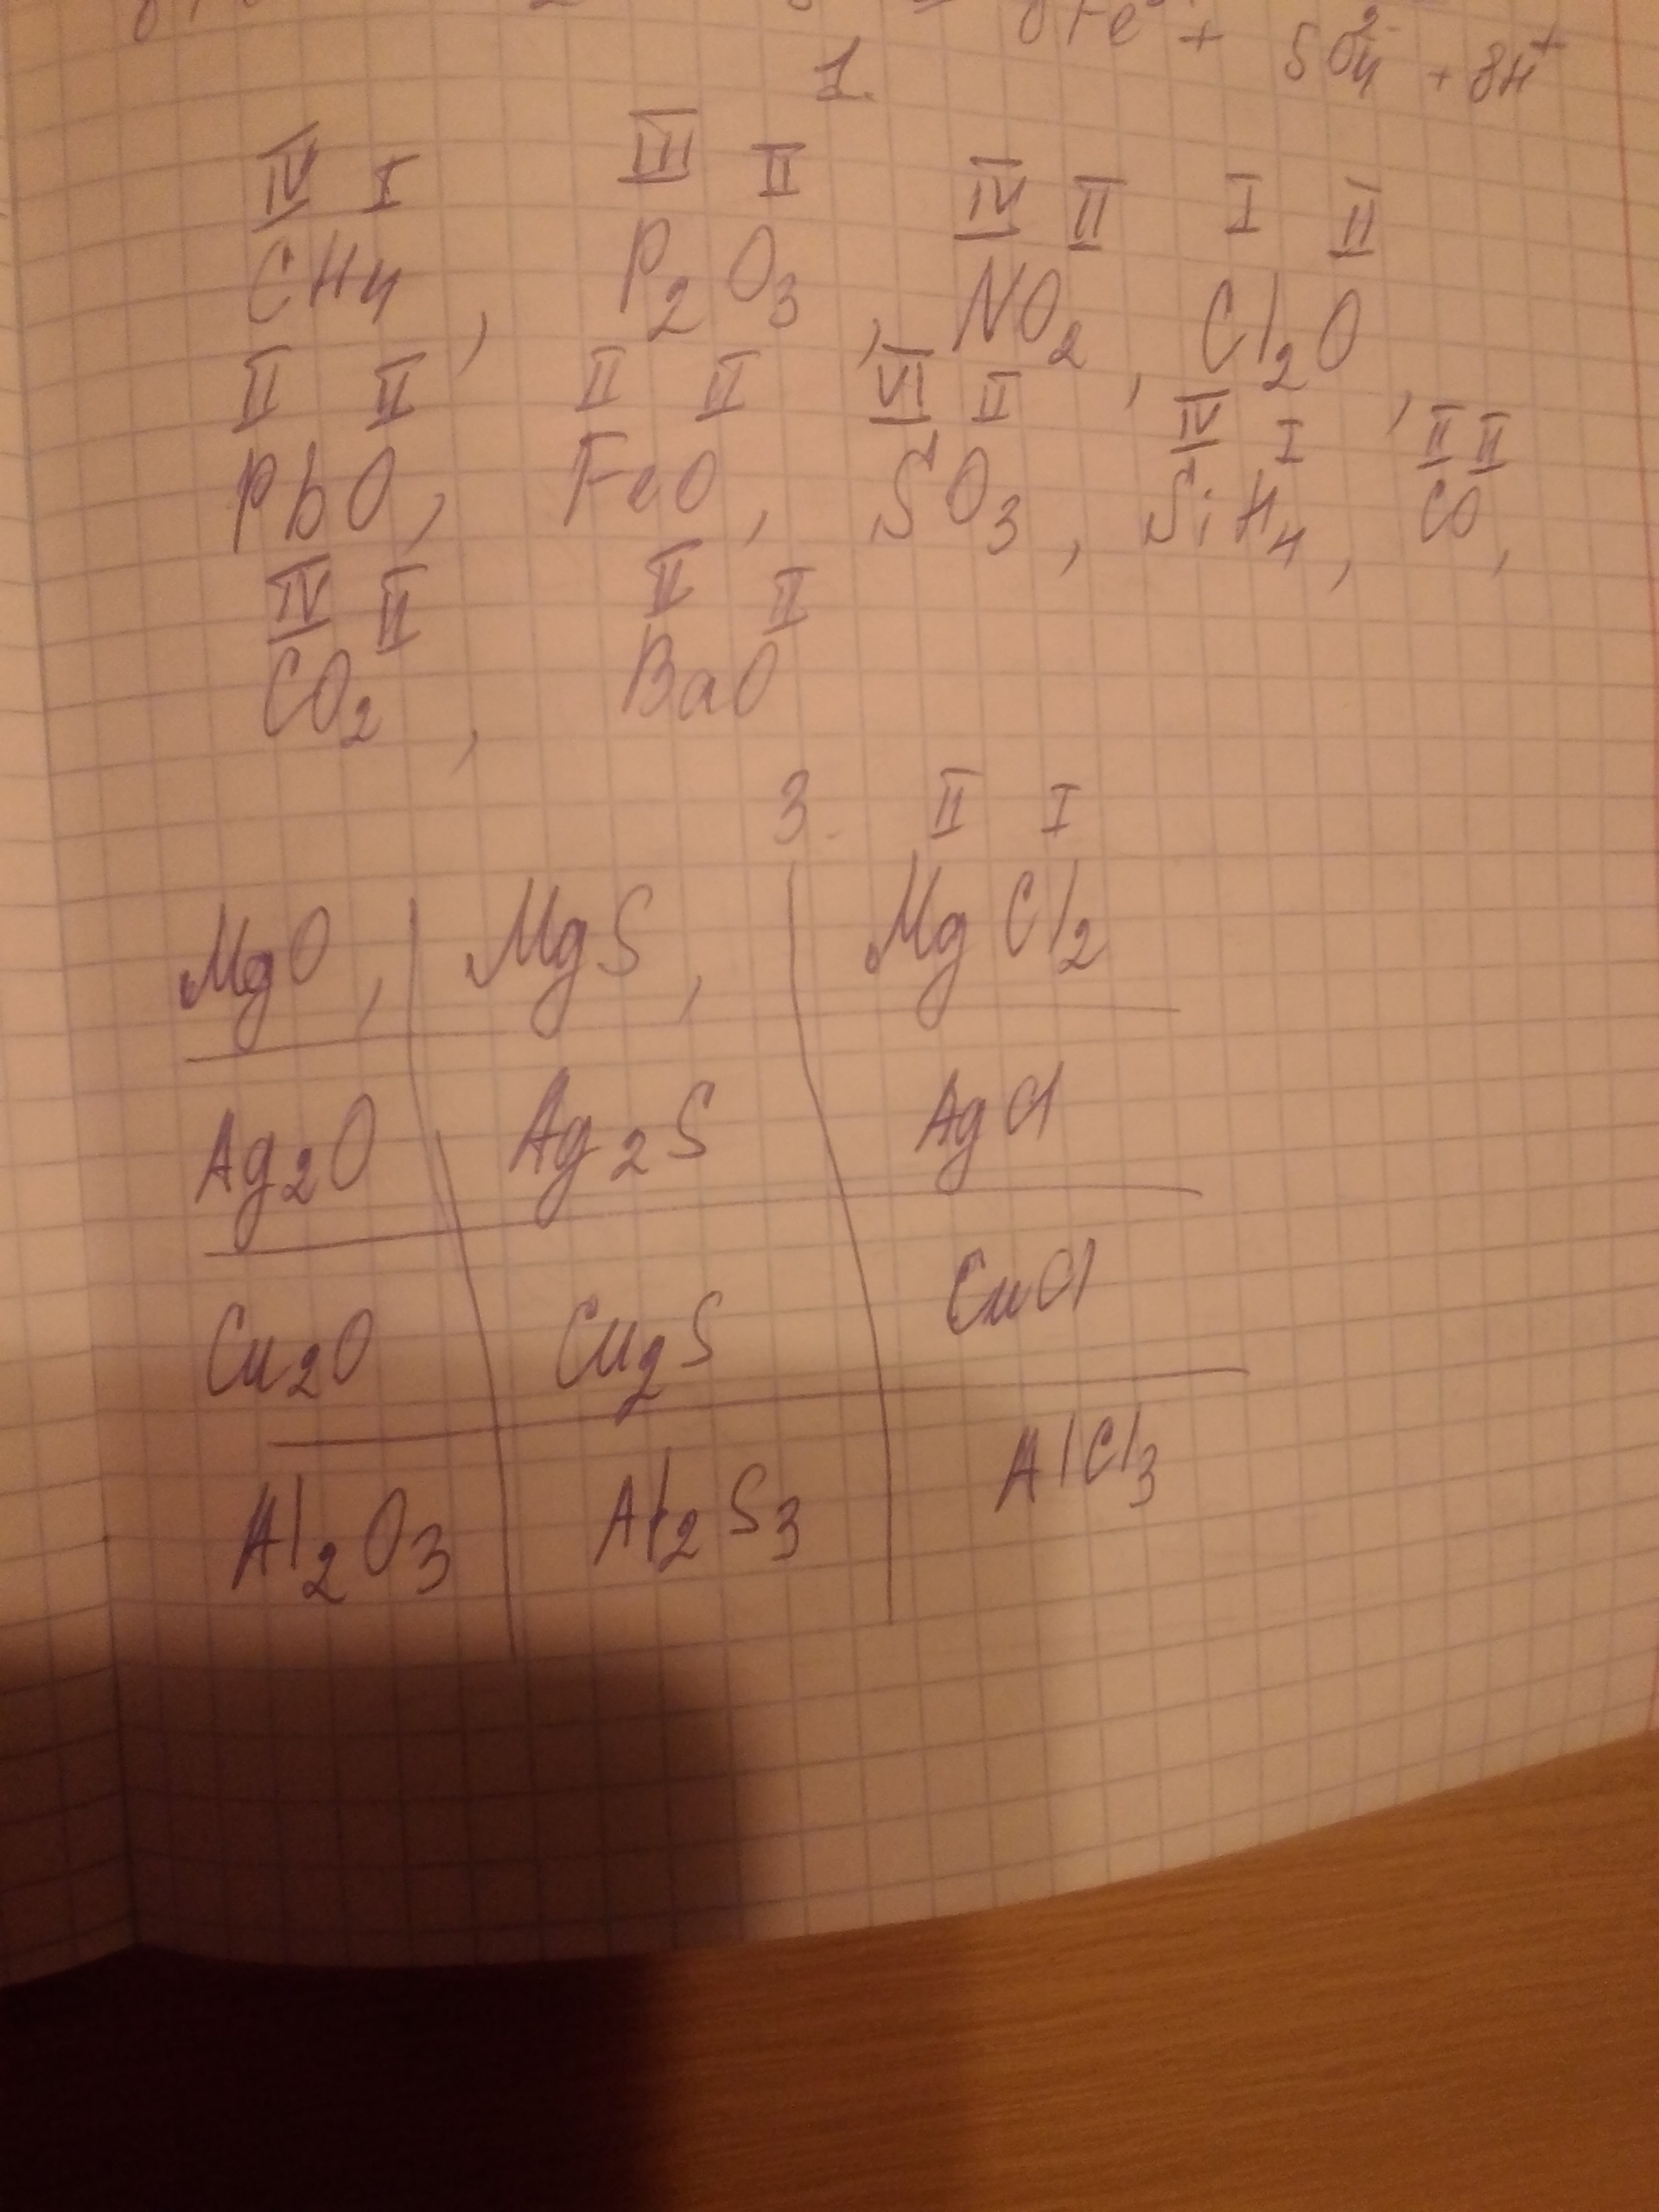 8Fe + SO₄²⁻ + 8H⁺
1.
IV I III II IV II I II
CH₄, P₂O₃, NO₂, Cl₂O,
II II II II VI II IV I II II
PbO, FeO, SO₃, SiH₄, CO,
IV II II II
CO₂, BaO
3. II I
MgO, MgS, MgCl₂
Ag₂O Ag₂S AgCl
Cu₂O Cu₂S CuCl
Al₂O₃ Al₂S₃ AlCl₃